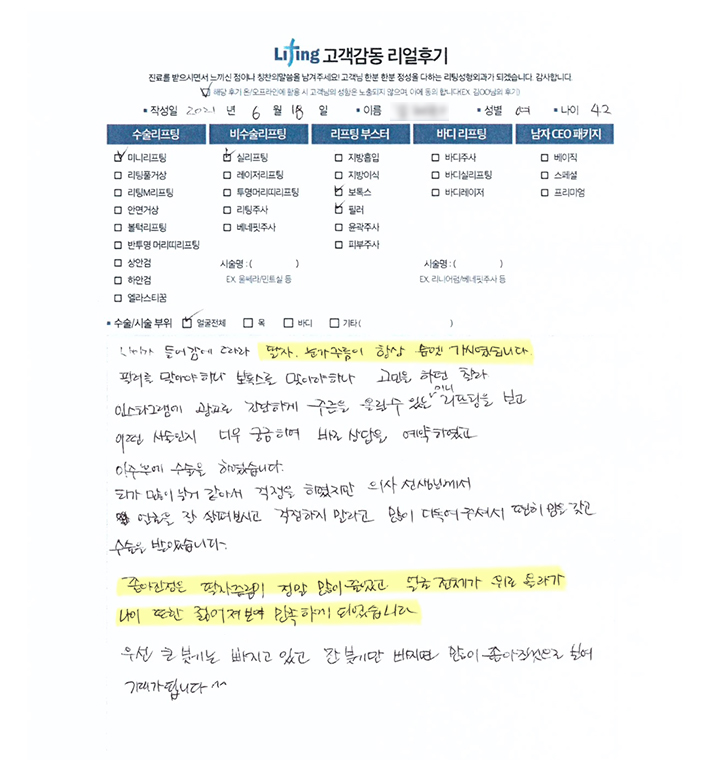 Lifting 고객감동 리얼후기
진료를 받으시면서 느끼신 점이나 칭찬의말씀을 남겨주세요! 고객님 한분 한분 정성을 다하는 리팅성형외과가 되겠습니다. 감사합니다.
해당 후기 온/오프라인에 활용 시 고객님의 성함은 노출되지 않으며, 이에 동의 합니다.(EX. 김OO님의 후기)
작성일 2021 년 6 월 18 일 이름 성별 여 나이 42
수술리프팅 비수술리프팅 리프팅 부스터 바디 리프팅 남자 CEO 패키지
미니리프팅 실리프팅 지방흡입 바디주사 베이직
리팅풀거상 레이저리프팅 지방이식 바디실리프팅 스페셜
리팅M리프팅 투명머리띠리프팅 보톡스 바디레이저 프리미엄
안면거상 리팅주사 필러
볼턱리프팅 베네핏주사 윤곽주사
반투명 머리띠리프팅 피부주사
상안검 시술명 : ( ) 시술명 : ( )
하안검 EX. 울쎄라/인트실 등 EX. 리니어펌/베네핏주사 등
엘라스티꿈
수술/시술 부위 얼굴전체 목 바디 기타 ( )
나이가 들어감에 따라 팔자. 눈가주름이 항상 가시였습니다.
필러를 맞아야 하나 보톡스로 맞아야하나 고민을 하던 찰라
인스타그램에 광고로 간단하게 주름을 올릴수 있는 미니 리프팅을 보고
어떤 시술인지 너무 궁금하여 바로 상담을 예약하였고
이주후에 수술을 하였습니다.
티가 많이 날거 같아서 걱정을 하였지만 의사 선생님께서
얼굴을 잘 살펴보시고 걱정하지 말라고 많이 다독여주셔서 편히 맘을 갖고
수술을 받았습니다.
좋아진점은 팔자주름이 정말 많이 좋았고 얼굴 전체가 위로 올라가
나이 또한 젊어져보여 만족하게 되었습니다
우선 큰 붓기는 빠지고 있고 잔 붓기만 빠지면 많이 좋아질것으로 보여
기대가 됩니다 ^^